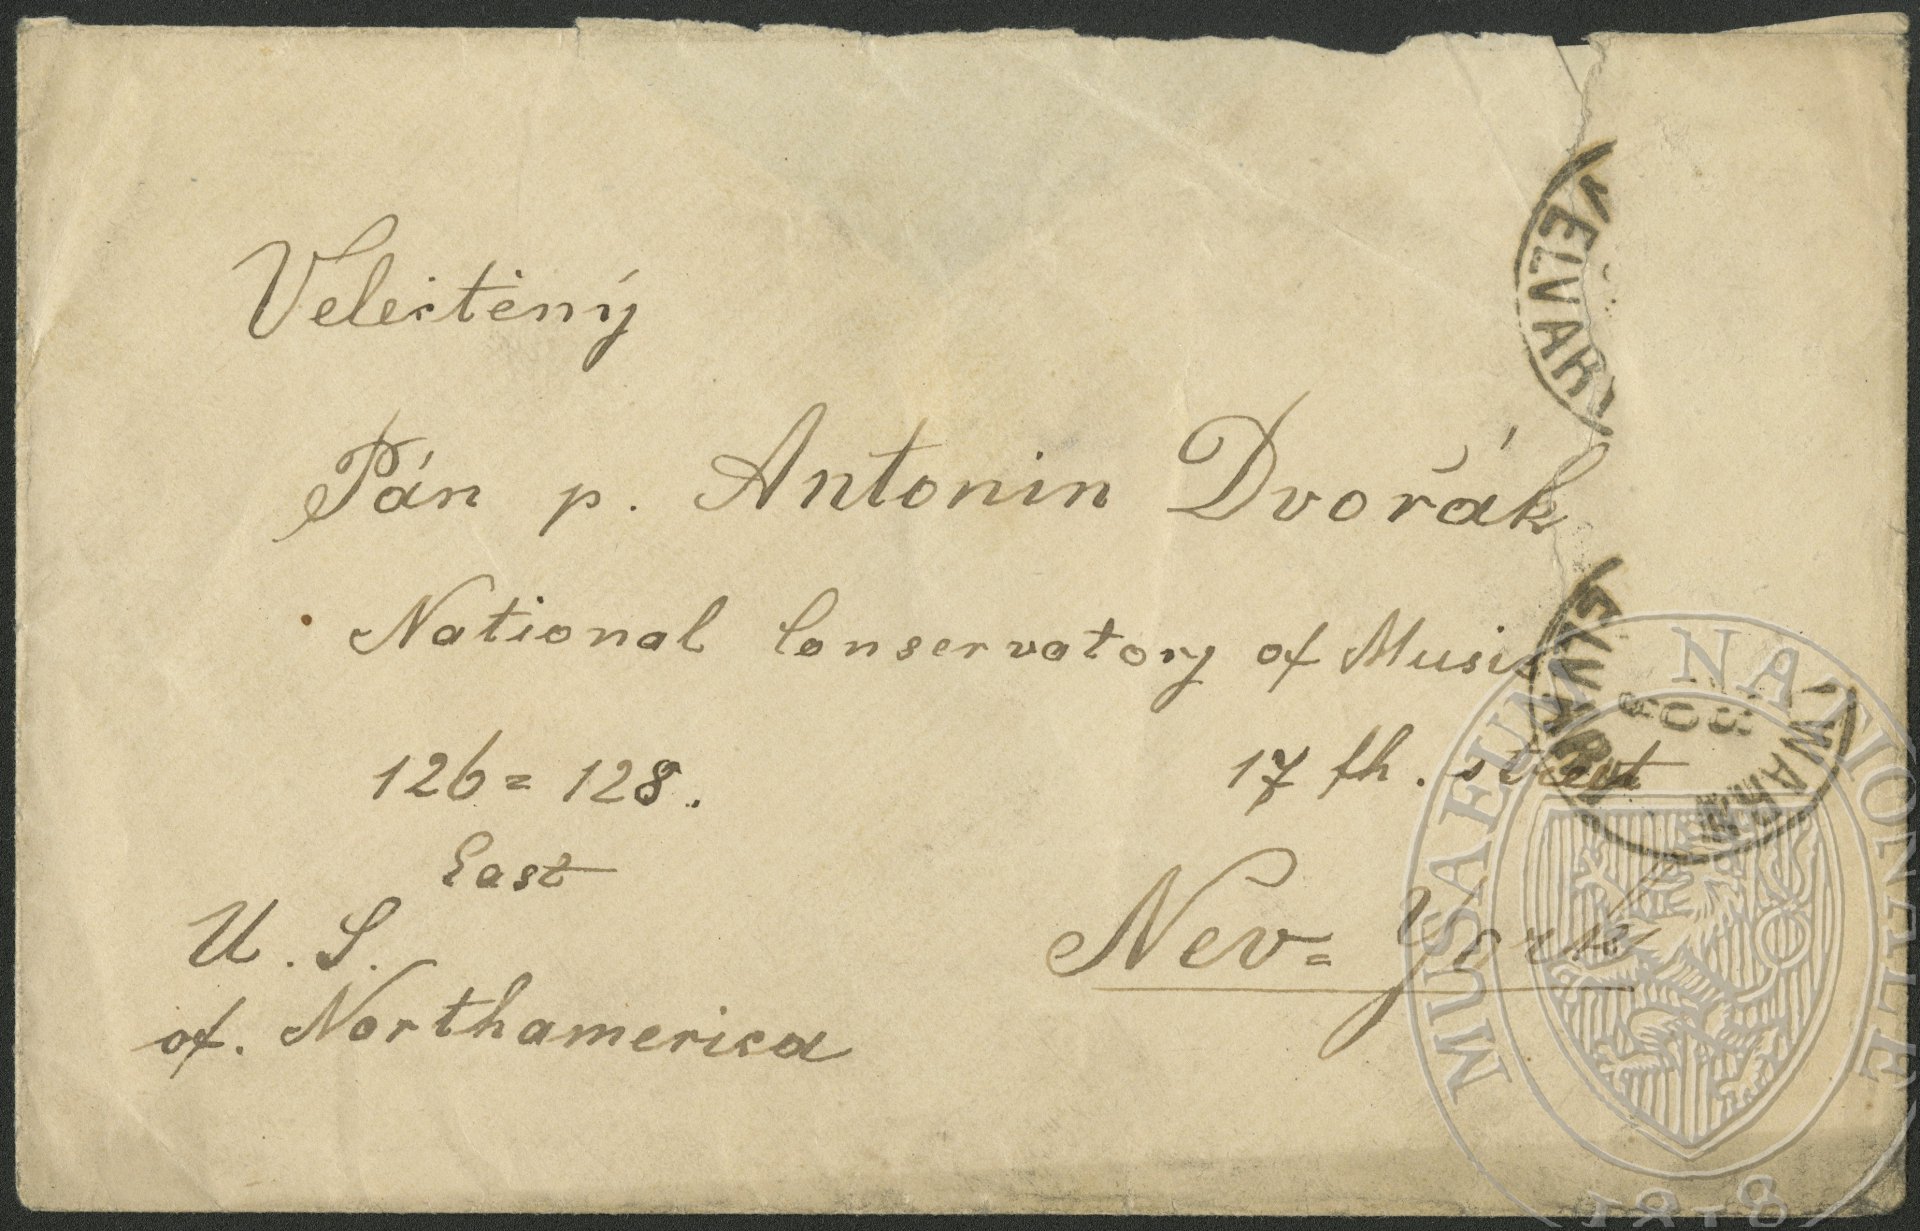 Velectěný
Pán p. Antonin Dvořák
National Conservatory of Music
126=128. 17 th. street
East
U. S. Nev=York
of. Northamerica
VELVARY
VELVARY
WELWARN
MUSAEUM NATIONALE
1818